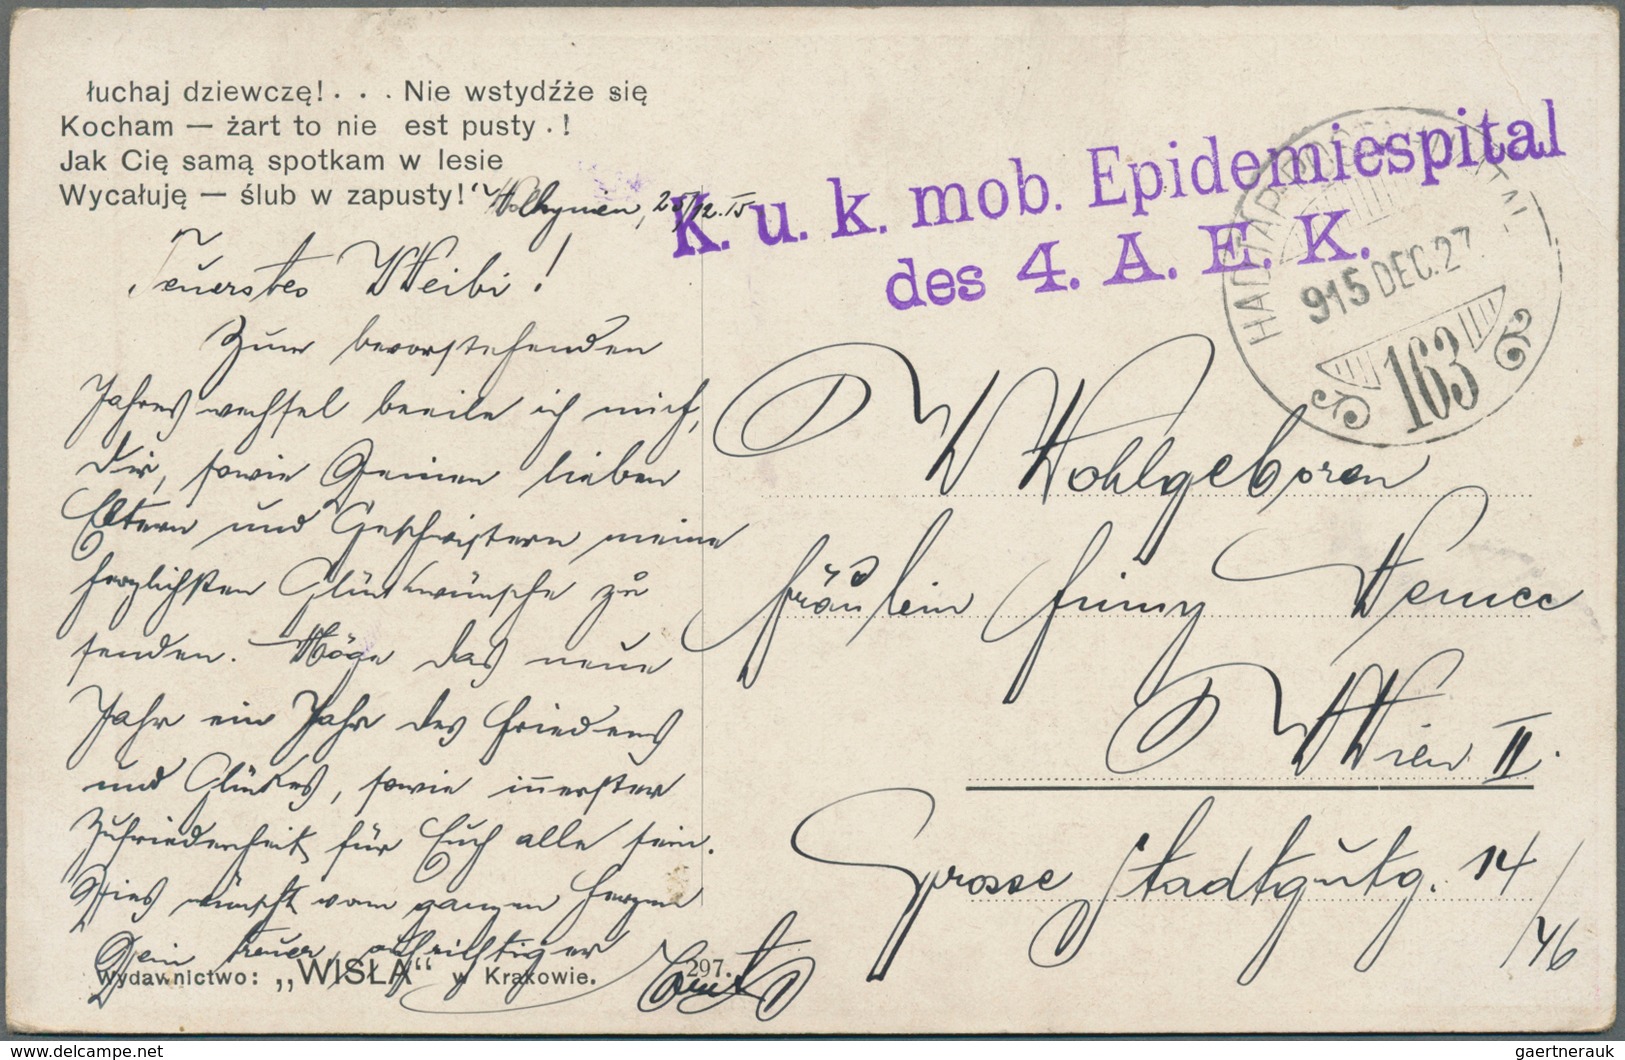 łuchaj dziewczę! . . . Nie wstydźże się
Kocham — żart to nie est pusty . !
Jak Cię samą spotkam w lesie
Wycałuję — ślub w zapusty!"
Wolhynien, 25/12.15
Teuerstes Weibi!
Zum bevorstehenden
Jahreswechsel beeile ich mich,
Dir, sowie Deinen lieben
Eltern und Geschwistern meine
herzlichsten Glückwünsche zu
senden. Möge das neue
Jahr ein Jahr des Friedens
und Glückes, sowie innerster
Zufriedenheit für Euch alle sein.
Dies wünscht vom ganzen Herzen
Dein treuer, aufrichtiger
Wydawnictwo: „WISŁA“ w Krakowie.
297.
K. u. k. mob. Epidemiespital
des 4. A. E. K.
915 DEC. 27
163
Wohlgeboren
Fräulein Finny Nemec
Wien II.
Grosse Stadtgutg. 14/
/46
www.delcampe.net
gaertnerauk